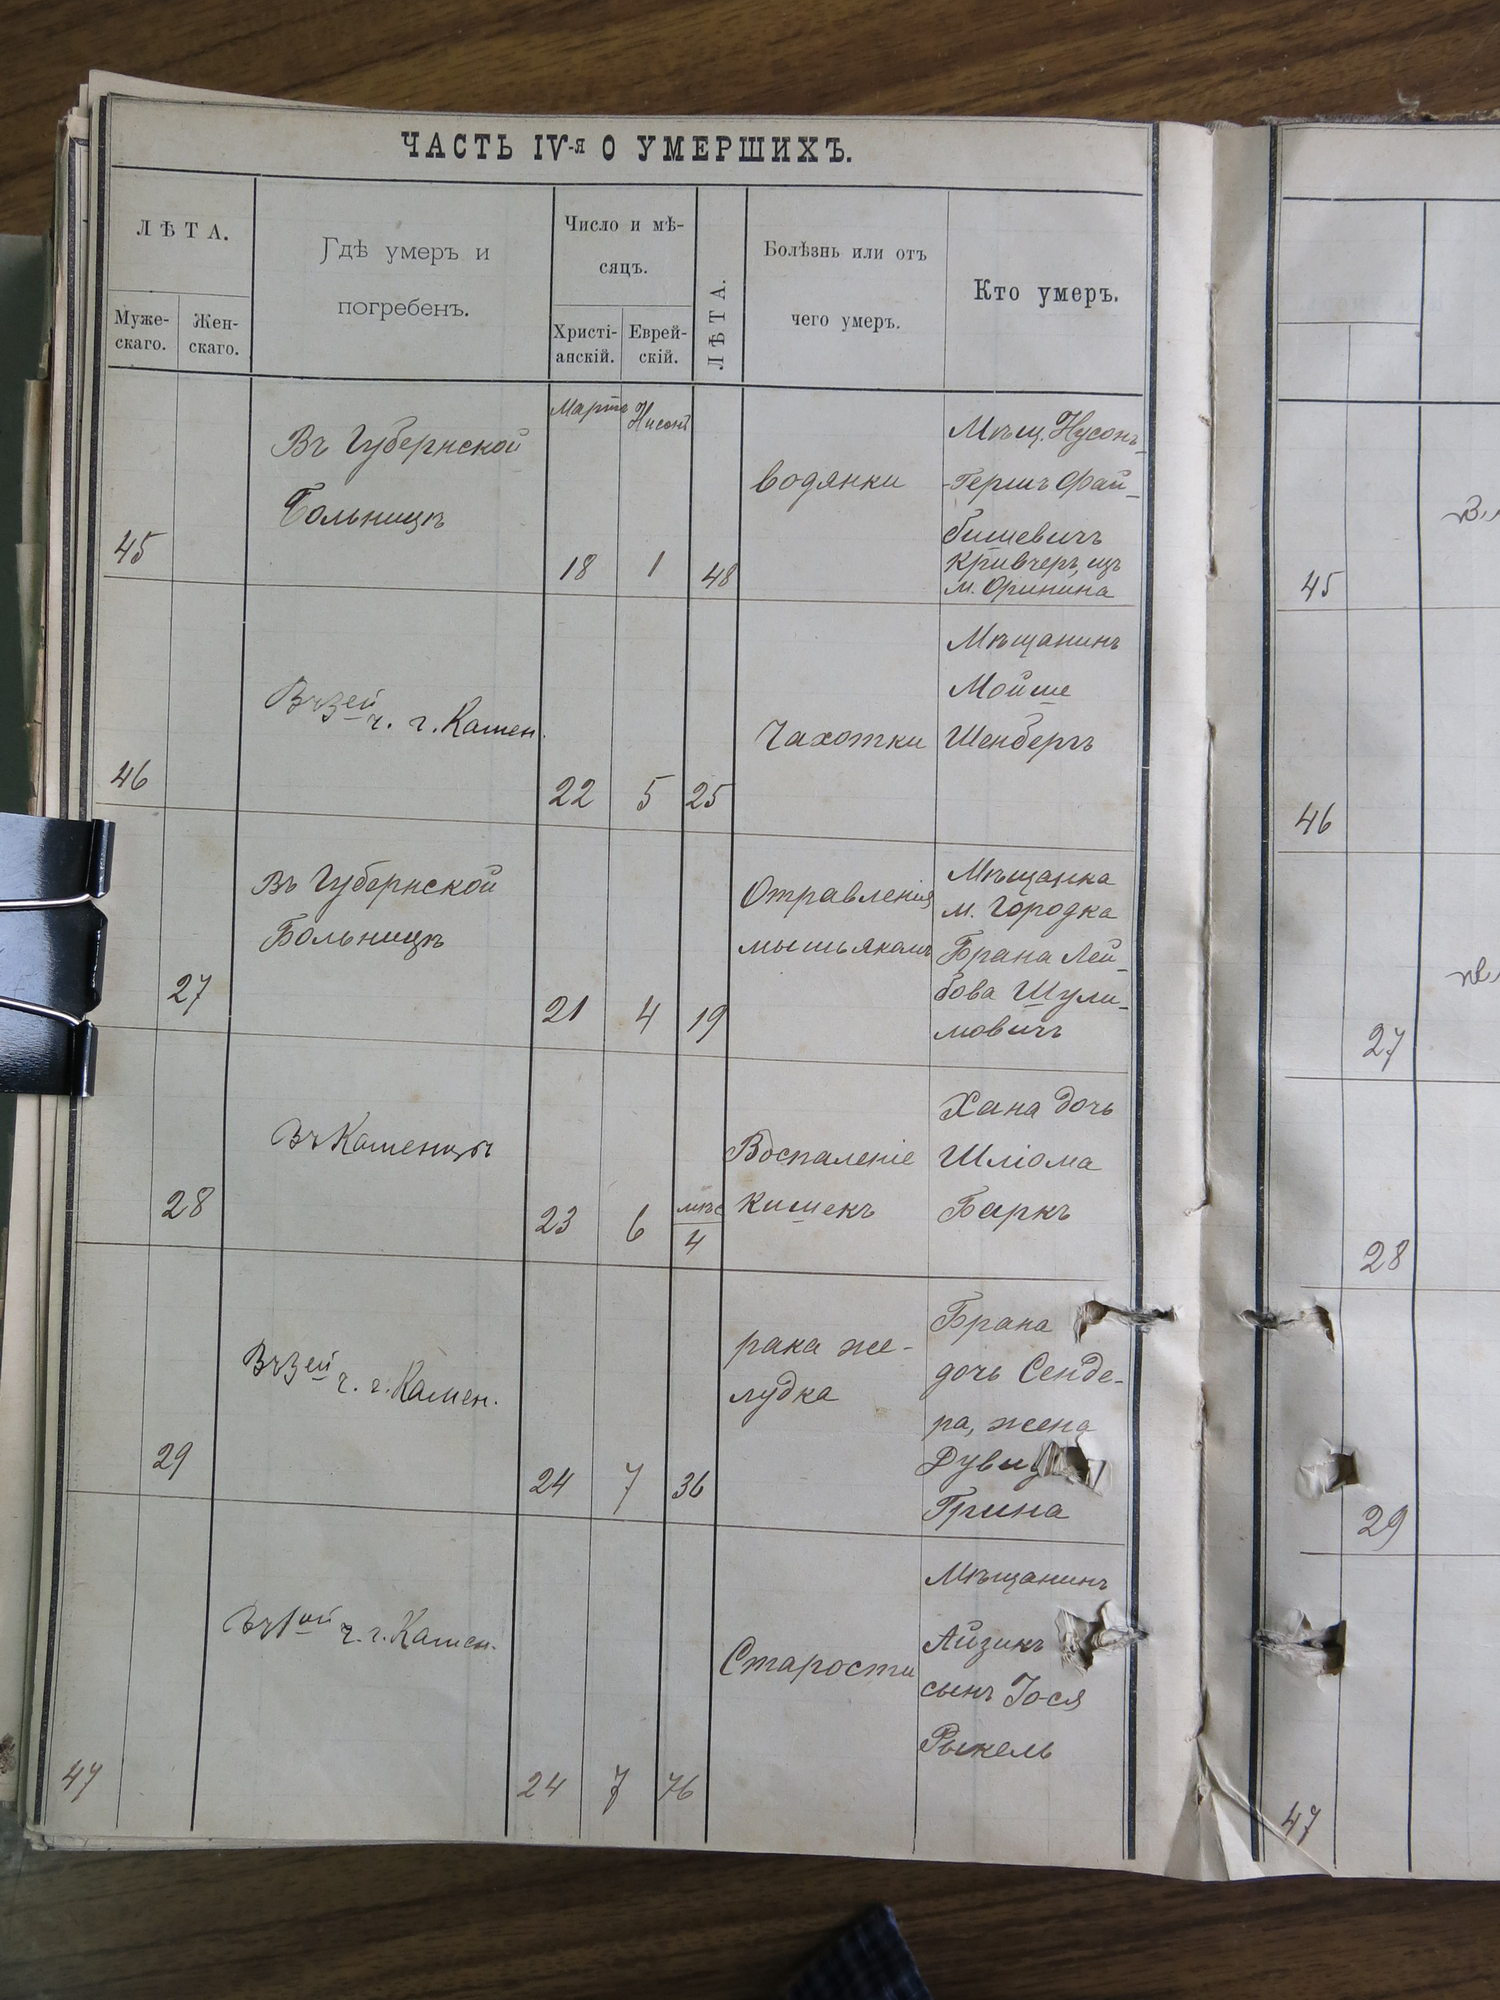 ЧАСТЬ IV-я О УМЕРШИХЪ.
ЛѢТА.
Муже-
скаго.
Жен-
скаго.
Гдѣ умеръ и
погребенъ.
Число и мѣ-
сяцъ.
Христі-
анскій.
Еврей-
скій.
ЛѢТА.
Болѣзнь или отъ
чего умеръ.
Кто умеръ.
45
Въ Губернской
Больницѣ
Мартъ
18
Нисонъ
1
48
водянки
Мѣщ. Нусонъ-
-Гершъ Фай-
бишевичъ
Кривчеръ, изъ
м. Оринина
46
Въ 3ей
ч. г. Камен.
22
5
25
Чахотки
Мѣщанинъ
Мойше
Шенбергъ
27
Въ Губернской
Больницѣ
21
4
19
Отравленія
мышьякомъ
Мѣщанка
м. Городка
Брана Лей-
бова Шули-
мовичъ
28
Въ Каменцѣ
23
6
мѣс
4
Воспаленіе
кишекъ
Хана дочь
Шліома
Баркъ
29
Въ 3ей
ч. г. Камен.
24
7
36
рака же-
лудка
Брана
дочь Сенде-
ра, жена
Грина
47
Въ 1ой
ч. г. Камен.
24
7
76
Старости
Мѣщанинъ
Айзикъ
сынъ Іося
Рыкель
45
46
27
28
29
47